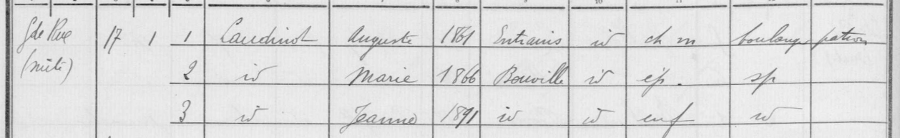 Gde Rue 17 1 1 Caudinot Auguste 1861 Entrains id ch m boulanger patron
(suite) 2 id Marie 1866 Bouville id ép. sp
3 id Jeanne 1891 id id enf id